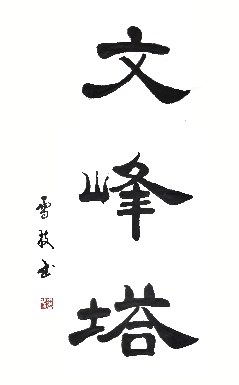 文峰塔
雪枝书